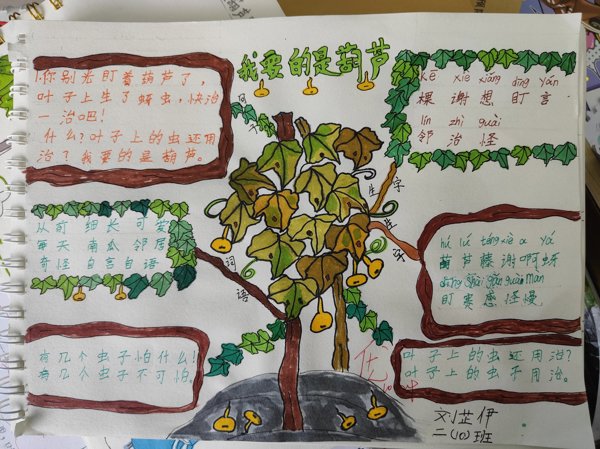 我要的是葫芦
1.你别光盯着葫芦了,
叶子上生了蚜虫,快治
一治吧!
什么?叶子上的虫还用
治?我要的是葫芦。
kē xiè xiǎng dīng yán
棵 谢 想 盯 言
lín zhì guài
邻 治 怪
生字
生字
从前 细长 可爱
每天 南瓜 邻居
奇怪 自言自语
词语
hú lú téng xiè a yá
葫芦藤谢啊蚜
dīng sài gǎn guài màn
盯赛感怪慢
有几个虫子怕什么!
有几个虫子不可怕。
叶子上的虫还用治?
叶子上的虫不用治。
刘芷伊
二(10)班